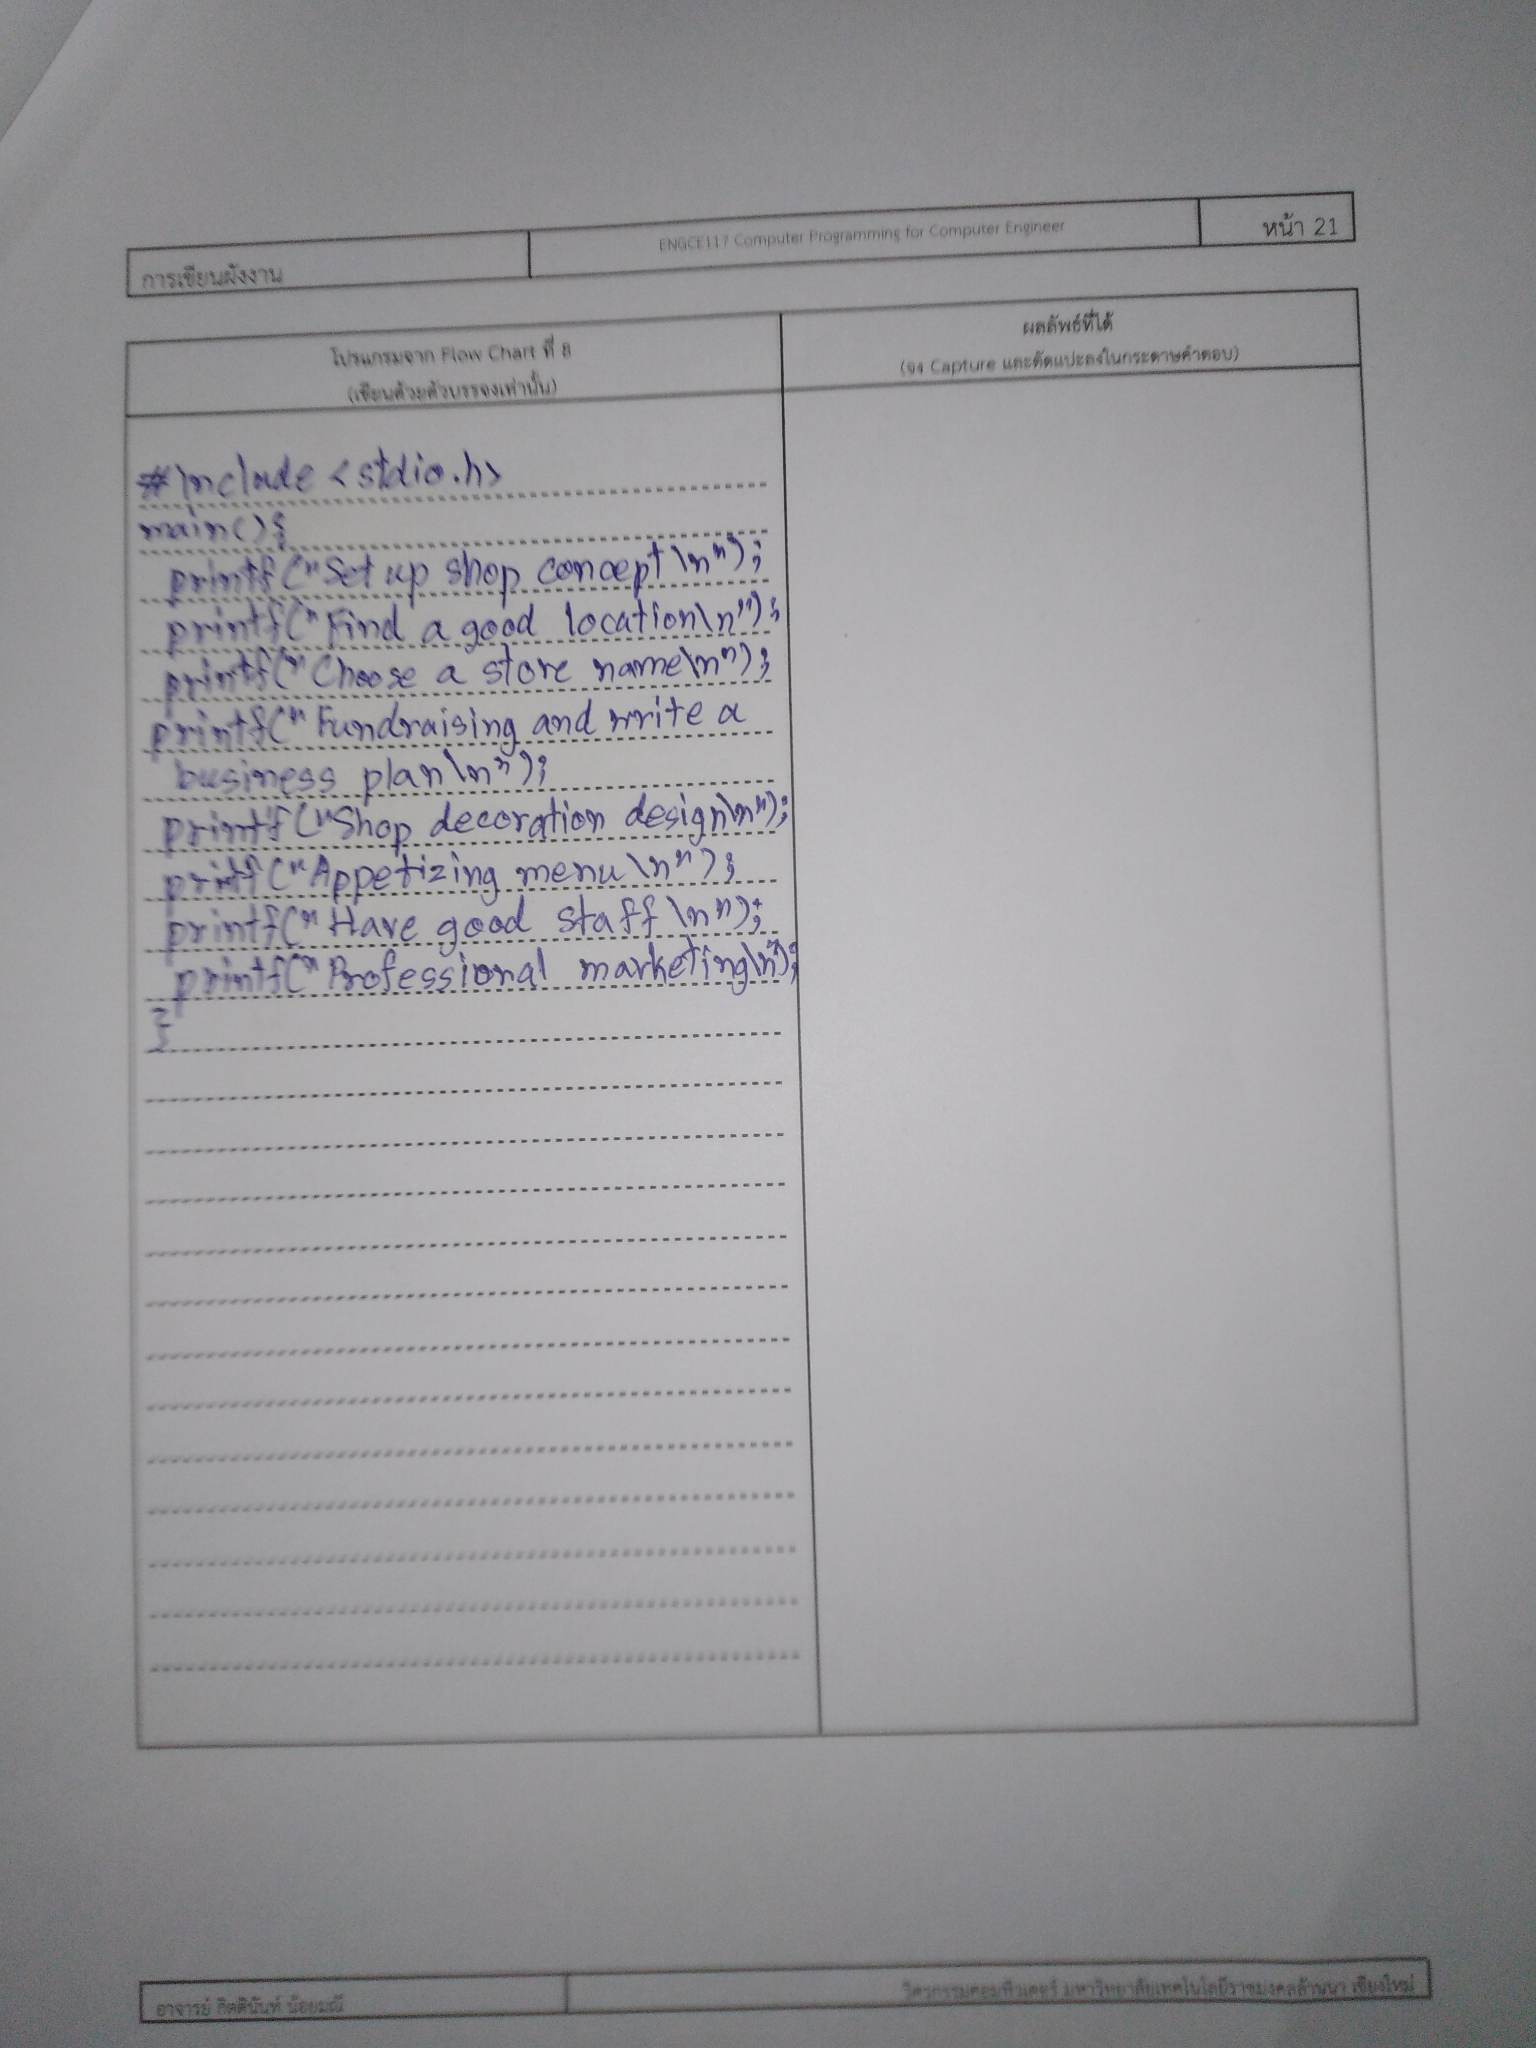 การเขียนผังงาน
ENGCE117 Computer Programming for Computer Engineer
หน้า 21
โปรแกรมจาก Flow Chart ที่ 8
(เขียนด้วยตัวบรรจงเท่านั้น)
ผลลัพธ์ที่ได้
(จง Capture และตัดแปะลงในกระดาษคำตอบ)
#include <stdio.h>
main(){
printf("Set up shop concept\n");
printf("Find a good location\n");
printf("Choose a store name\n");
printf("Fundraising and write a
business plan\n");
printf("Shop decoration design\n");
printf("Appetizing menu\n");
printf("Have good staff\n");
printf("Professional marketing\n");
}
อาจารย์ กิตตินันท์ น้อยมณี
วิศวกรรมคอมพิวเตอร์ มหาวิทยาลัยเทคโนโลยีราชมงคลล้านนา เชียงใหม่